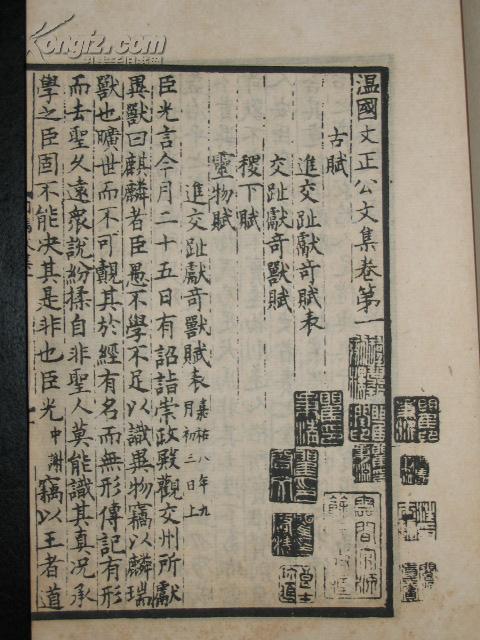 Kongfz.com
溫國文正公文集卷第一
古賦
進交趾獻奇獸賦表
交趾獻奇獸賦
稷下賦
靈物賦
進交趾獻奇獸賦表 嘉祐八年九月初三日上
臣光言今月二十五日有詔詣崇政殿觀交州所獻
異獸曰麒麟者臣愚不學不足以識異物竊以麟瑞
獸也曠世而不可覿其於經有名而無形傳記有形
而去聖久遠衆說紛揉自非聖人莫能識其真況承
學之臣固不能决其是非也臣光中謝竊以王者道